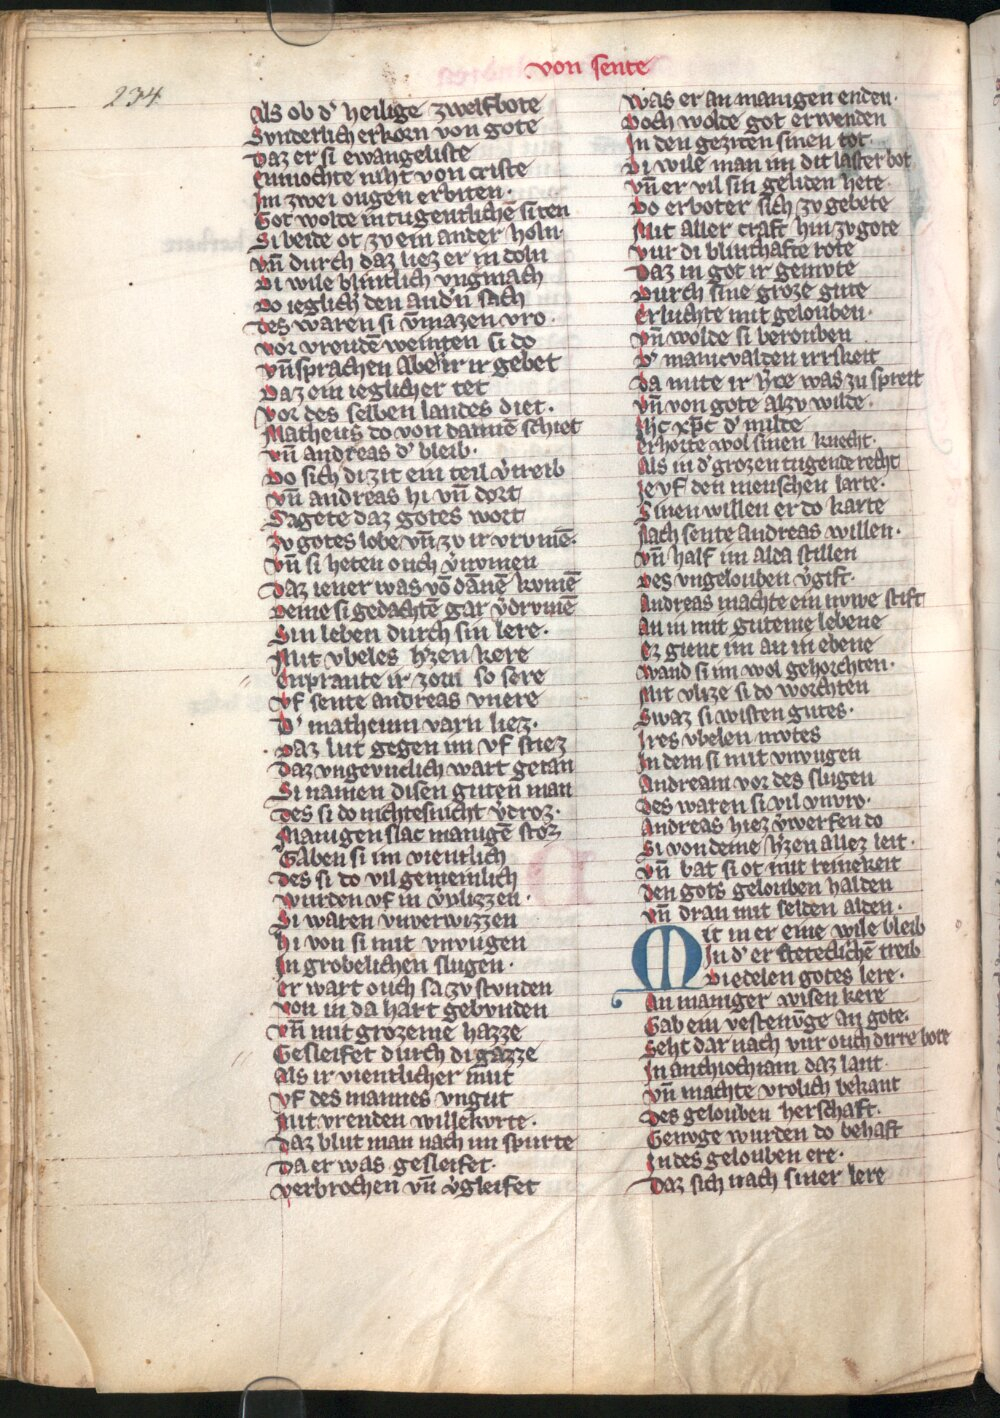 von sente
234
Als ob d' heilige zwelfbote
Svnderlich erkorn von gote
Daz er si ewangeliste
Enmochte niht von criste
Im zwei ougen erbiten·
Got wolde in tugentliche siten
Si beide ot zv ein ander holn
vn̄ durch daz liez er in doln
Di wile blintlich vngmach
Do ieglich den and'n sach
des waren si v̄mazen vro·
vor vroudē weinten si do
vn̄ sprachen Abe ir ir gebet
Daz ein ieglicher tet
vor des selben landes diet·
Matheus do von dannē schiet
vn̄ andreas d' bleib·
Do sich di zit ein teil v'treib
vn̄ andreas hi vn̄ dort
Sagete daz gotes wort
zv gotes lobe vn̄ zv ir vrvmē·
vn̄ si heten ouch v'nvmen
Daz iener was vō dānē komē
Deme si gedachtē gar v'drvmē
Sin leben durch sin lere·
Mit vbeles h'zen kere
enprante ir zorn so sere
vf sente andreas vnere
D' matheum varn liez·
Daz lut gegen im vf stiez
Daz vngevuclich wart getan
Si namen disen guten man
des si do nichtesnicht v'droz·
Manigen slac manigē stoz
Gaben si im vientlich
des si do vil gemeinlich
wurden vf in v'vlizzen·
Si waren vnverwizzen
hi von si mit vnvugen
In grobelichen slugen·
er wart ouch sa zv stvnden
von in da hart gebvnden
vn̄ mit grozeme hazze
Gesleifet durch di gazze
als ir vientlicher mut
vf des mannes vngut
Mit vrenden willekvrte·
daz blut man nach im spurte
Da er was gesleifet·
verbrochen vn̄ v'gleifet
was er an manigen enden·
Doch wolde got erwenden
In den geziten sinen tot·
Di wile man im dit laster bot
vn̄ er vil sin geliden hete·
Do erboter sich zv gebete
Mit aller craft hin zv gote
vur di bluthafte rote
Daz in got ir gemvte
Durch sine groze gute
erluchte mit gelouben·
vn̄ wolde si berouben
D' manicvalden irrekeit
Da mite ir h'ce was zu spreit
vn̄ von gote alzv wilde·
Ihc xp̄c d' milde
erhorte wol sinen knecht·
Als in d' grozen tugende recht
Ie vf den menschen larte·
Sinen willen er do karte
Nach sente andreas willen·
vn̄ half im alda stillen
Des vngelouben v'gift·
Andreas machte ein nvwe stift
an in mit guteme lebene
ez gienc im an in ebene
wand si im wol gehorchten·
Mit vlize si do worchten
Swaz si wisten gutes·
Ires vbelen mvtes
In dem si mit vnvugen
Andream vor des slugen
des waren si vil vnvro·
Andreas hiez v'werfen do
Si von deme h'zen allez leit·
vn̄ bat si ot mit reinekeit
den gots gelouben halden
vn̄ dran mit selden alden·
Mit in er eine wile bleib
In d' er steteclichē treib
Di edelen gotes lere·
An maniger wisen kere
Gab ein vestenv̄ge an gote·
Seht dar nach vur ouch dirre bote
In anthiochiam daz lant·
vn̄ machte vrolich bekant
des gelouben herschaft·
Genvge wurden do behaft
In des gelouben ere·
Daz sich nach siner lere